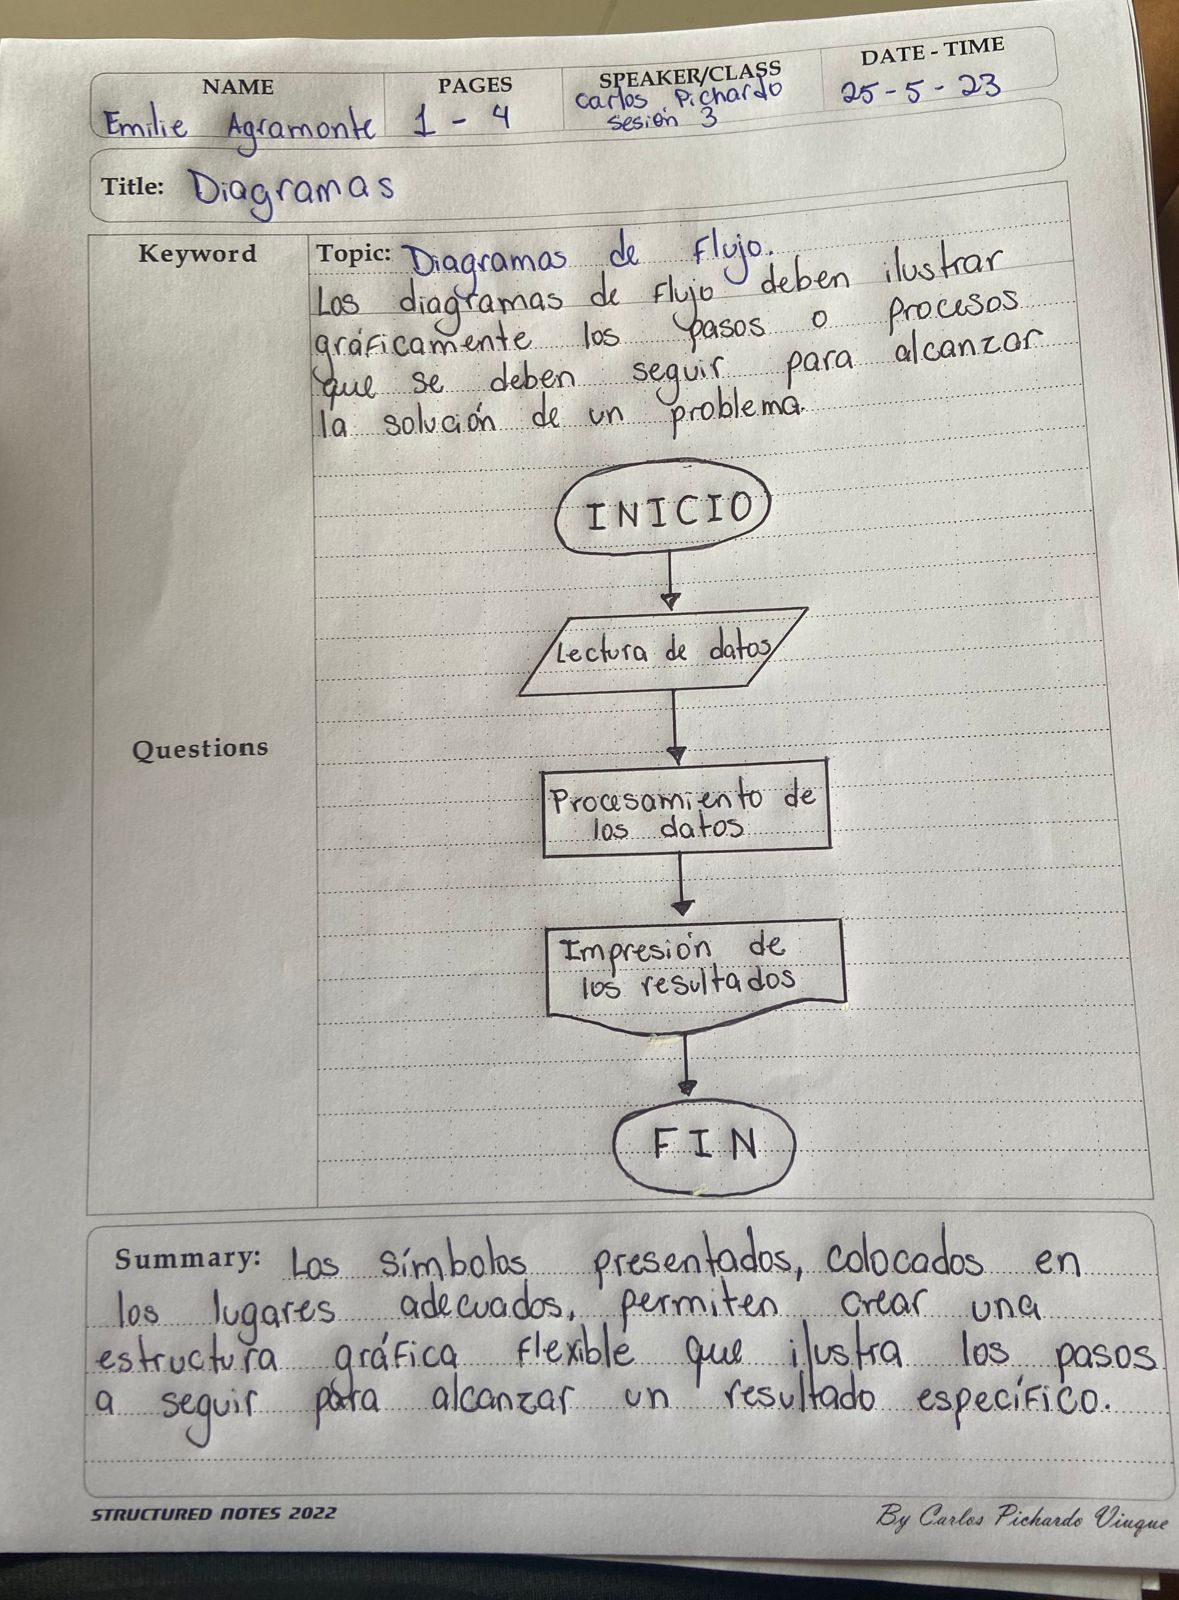 NAME
Emilie Agramonte
PAGES
1 - 4
SPEAKER/CLASS
Carlos Pichardo
Sesión 3
DATE - TIME
25-5-23
Title: Diagramas
Keyword
Questions
Topic: Diagramas de flujo.
Los diagramas de flujo deben ilustrar
gráficamente los pasos o procesos
que se deben seguir para alcanzar
la solución de un problema.
INICIO
Lectura de datos
Procesamiento de
los datos
Impresión de
los resultados
FIN
Summary: Los símbolos presentados, colocados en
los lugares adecuados, permiten crear una
estructura gráfica flexible que ilustra los pasos
a seguir para alcanzar un resultado específico.
STRUCTURED NOTES 2022
By Carlos Pichardo Viuque